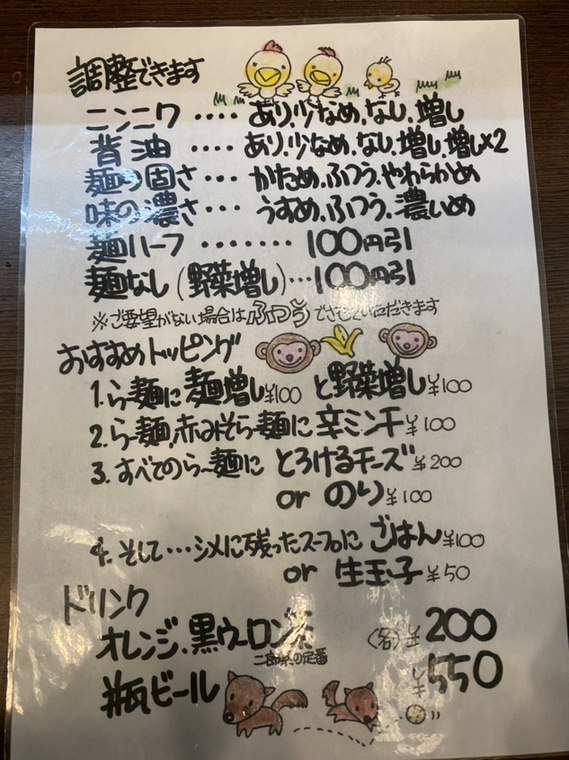 調整できます
ニンニク････あり、少なめ、なし、増し
背油････あり、少なめ、なし、増し、増し×2
麺の固さ･･･かため、ふつう、やわらかめ
味の濃さ･･･うすめ、ふつう、濃いめ
麺ハーフ･･･････100円引
麺なし(野菜増し)･･･100円引
※ご要望がない場合はふつうでさせていただきます
おすすめトッピング
1.らー麺に麺増し¥100と野菜増し¥100
2.らー麺、赤みそらー麺に辛ミンチ¥100
3.すべてのらー麺にとろけるチーズ¥200
orのり¥100
4.そして･･･シメに残ったスープにごはん¥100
or生玉子¥50
ドリンク
オレンジ、黒ウーロン茶(各)¥200
二郎系の定番
瓶ビール¥550